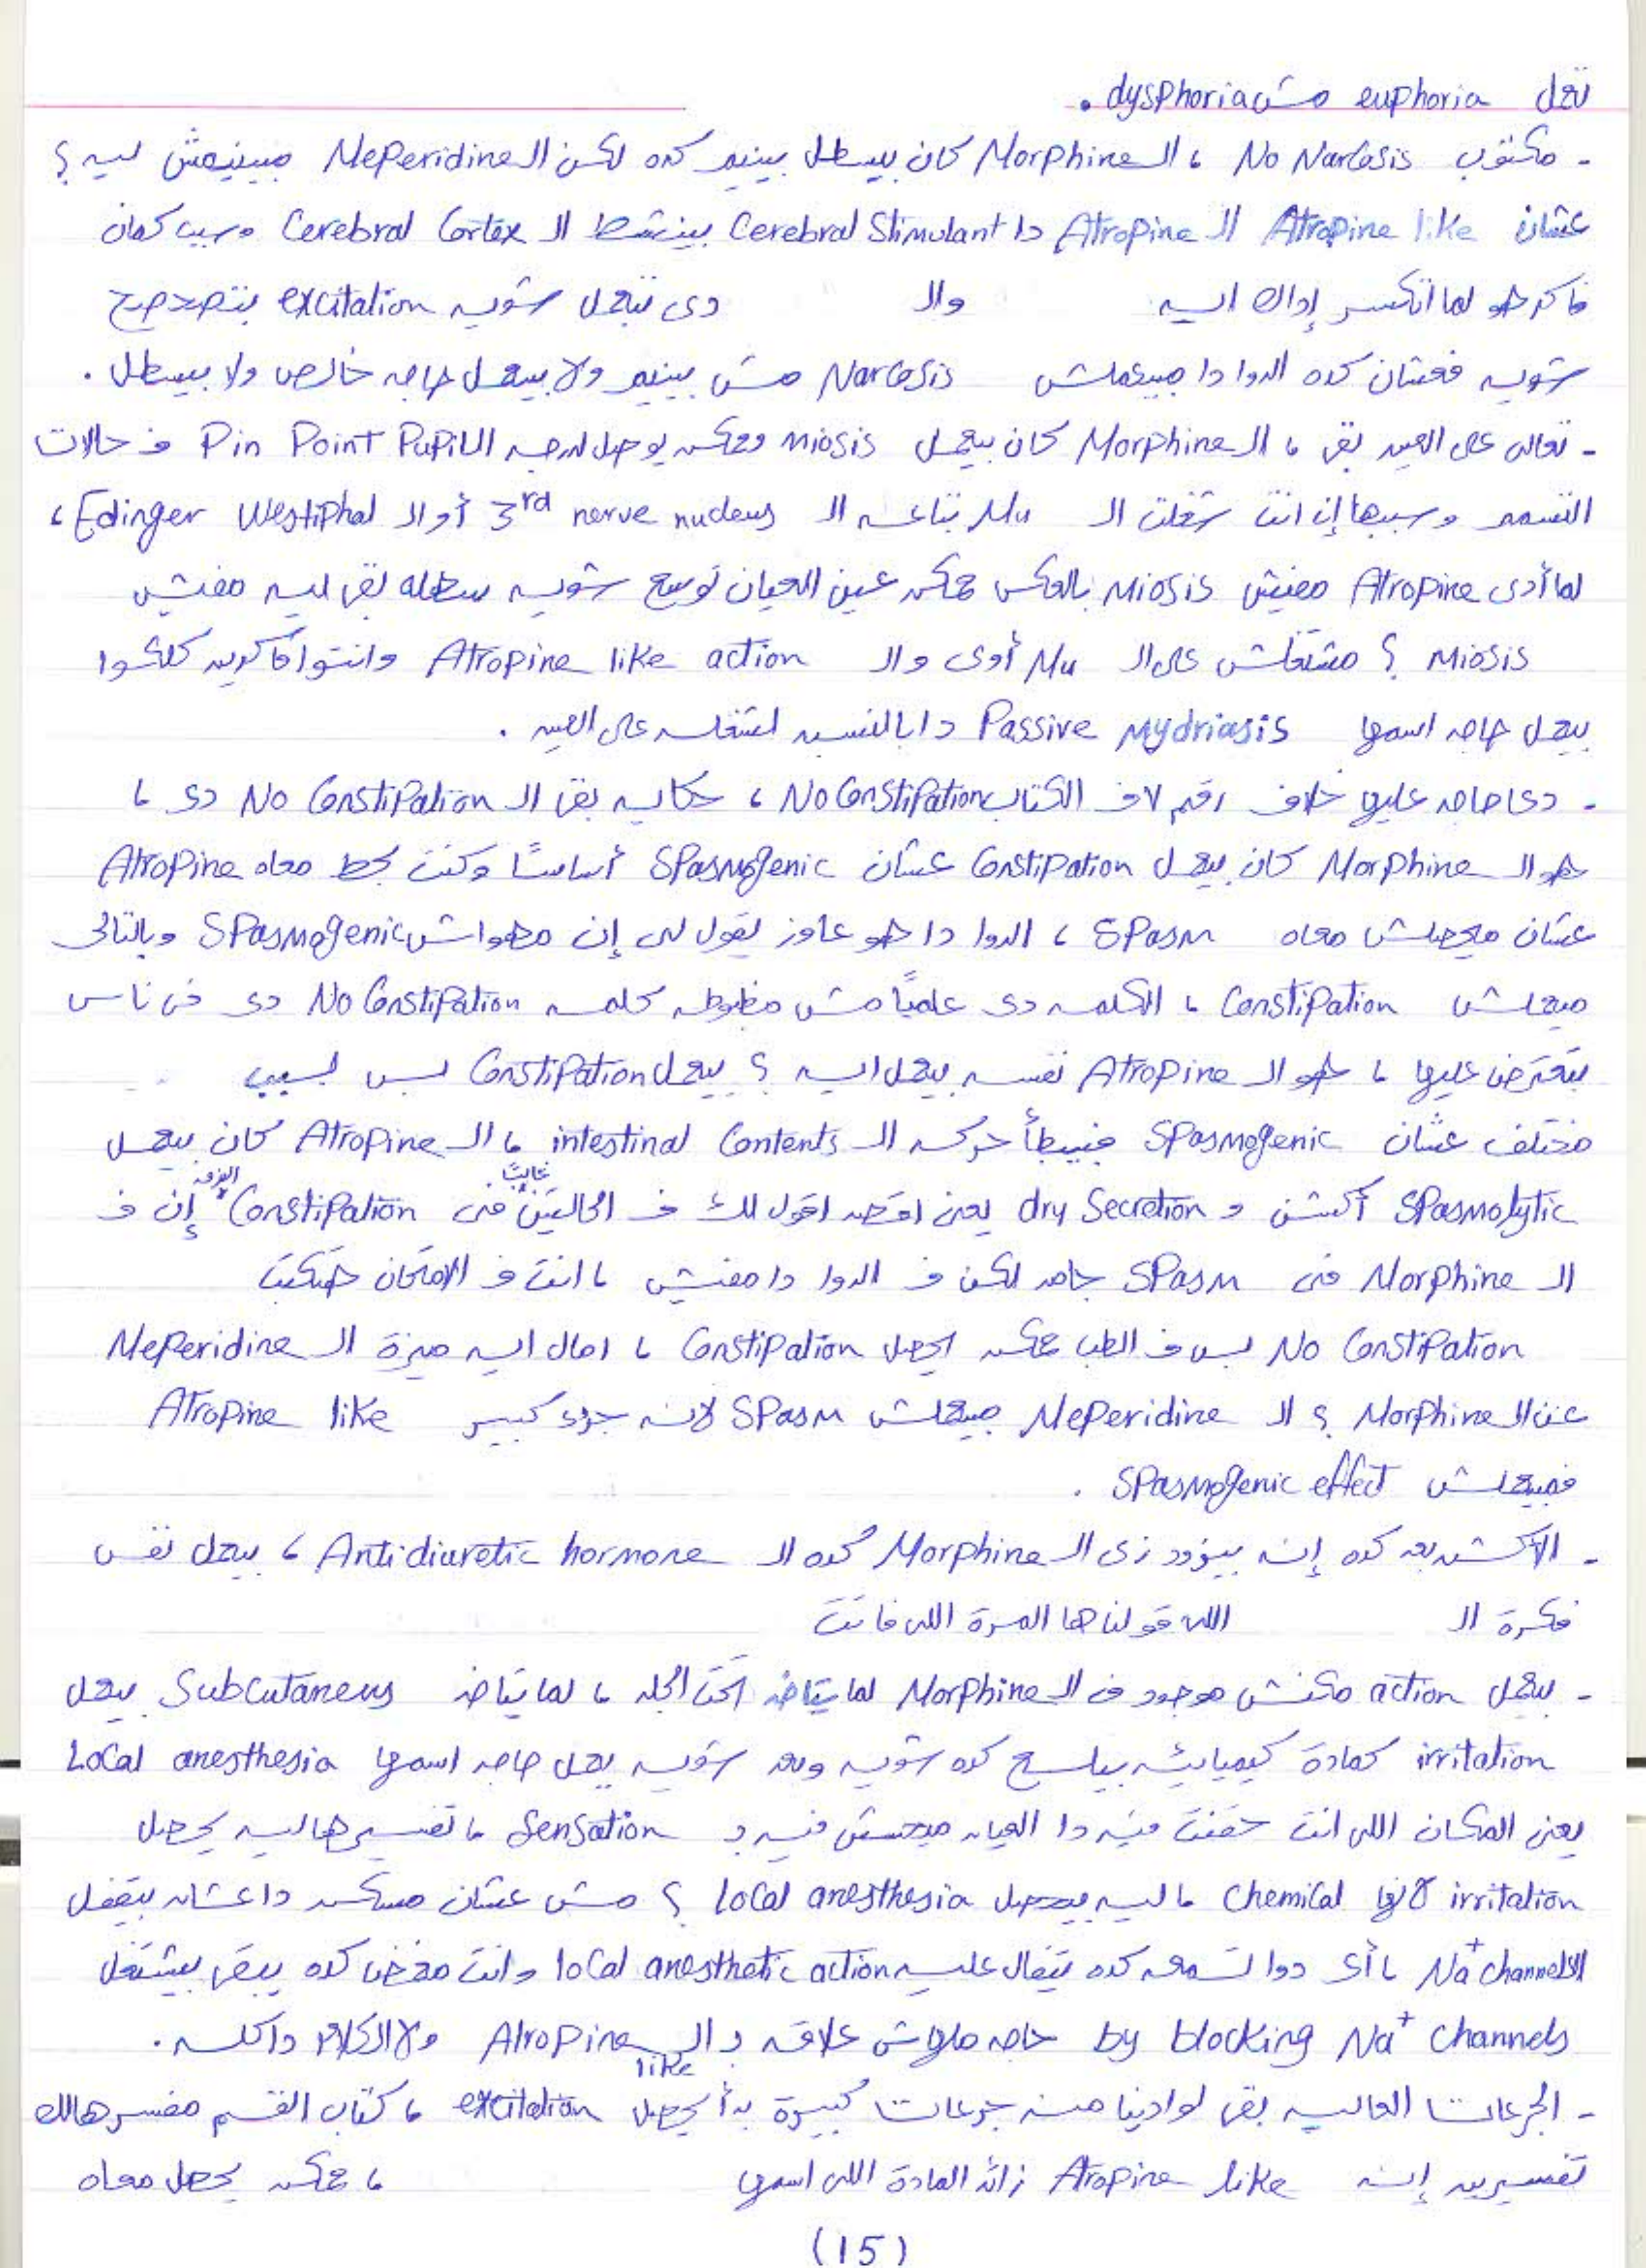 تعمل euphoria مش dysphoria .
- مكتوب No Narcosis ، الـ Morphine كان بيسطل بينيم كده لكن الـ Meperidine مبينيمش ليه ؟
عشان Atropine like الـ Atropine دا Cerebral Stimulant بينشط الـ Cerebral Cortex وسبب كمان
فاكر هو لما اتكسر إداك ايه والـ دى تبعمل شويه excitation بتصحصح
شويه فعشان كده الدوا دا مبيعملش Narcosis مش بينيم ولا بيعمل حاجه خالص ولا بيسطل .
- تعالى على العين بقى ، الـ Morphine كان بيعمل miosis وممكن يوصل لدرجه الـ Pin Point Pupil ف حالات
التسمم وسببها إن انت شغلت الـ Mu بتاعه الـ 3rd nerve nucleus أو الـ Edinger Westiphal ،
لما أدى Atropine مفيش miosis بالعكس ممكن عين العيان توسع شويه بقى ليه مفيش
miosis ؟ مشتغلش على الـ Mu أوى والـ Atropine like action وانتوا فاكرين كلكوا
بيعمل حاجه اسمها Passive mydriasis دا بالنسبه لشغله على العين .
- دى حاجه عليها خلاف رقم ٧ ف الكتاب No Constipation ، حكايه بقى الـ No Constipation دى ،
هو الـ Morphine كان بيعمل Constipation عشان Spasmogenic أساسًا وكنت بحط معاه Atropine
عشان ميحصلش معاه Spasm ، الدوا دا هو عاوز يقول لى إن مهواش Spasmogenic وبالتالى
ميعملش Constipation ، الكلمه دى علميًا مش مظبوطه كلمه No Constipation دى فى ناس
بتعترض عليها ، هو الـ Atropine نفسه بيعمل ايه ؟ بيعمل Constipation بس لسبب
مختلف عشان Spasmogenic فبيبطأ حركه الـ intestinal Contents ، الـ Atropine كان بيعمل
Spasmolytic أكشن و dry Secretion يعنى اقصد اقول لك ف الحالتين غالبًا فى Constipation الفرق إن ف
الـ Morphine فى Spasm جامد لكن ف الدوا دا مفيش ، انت ف الامتحان هتكتب
No Constipation بس ف الطب ممكن يحصل Constipation ، امال ايه ميزة الـ Meperidine
عن الـ Morphine ؟ الـ Meperidine مبيعملش Spasm لانه جزء كبير Atropine like
فمبيعملش Spasmogenic effect .
- الأكشن بعد كده إنه بيزود زى الـ Morphine كده الـ Antidiuretic hormone ، بيعمل نفس
فكرة الـ اللى قولناها المرة اللى فاتت
- بيعمل action مكنش موجود فى الـ Morphine لما يتاخد تحت الجلد ، لما يتاخد Subcutaneus بيعمل
irritation كمادة كيميائيه بيلسع كده شويه وبعد شويه يعمل حاجه اسمها Local anesthesia
يعنى المكان اللى انت حقنت فيه دا العيان مبيحسش فيه بـ Sensation ، تفسيرها ليه يحصل
irritation لأنها Chemical ، ليه بيحصل local anesthesia ؟ مش عشان مسكن دا عشان بيقفل
الـ Na+ channels ، أى دوا تسمعه كده يتقال عليه local anesthetic action وانت مغمض كده يبقى بيشتغل
by blocking Na+ Channels حاجه ملهاش علاقه بـ الـ Atropine like ولا الكلام دا كله .
- الجرعات العاليه بقى لو ادينا منه جرعات كبيرة بدأ يحصل excitation ، كتاب القسم مفسرهالك
تفسيرين إنه Atropine like زائد المادة اللى اسمها ، ممكن يحصل معاه
(15)